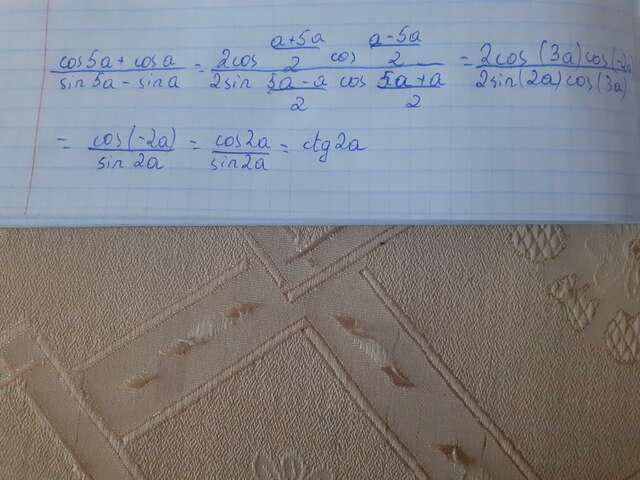 (cos5a + cosa)/(sin5a - sina) = (2cos (a+5a)/2 cos (a-5a)/2)/(2sin (5a-a)/2 cos (5a+a)/2) = (2cos(3a)cos(-2a)/(2sin(2a)cos(3a))
= cos(-2a)/sin2a = cos2a/sin2a = ctg2a